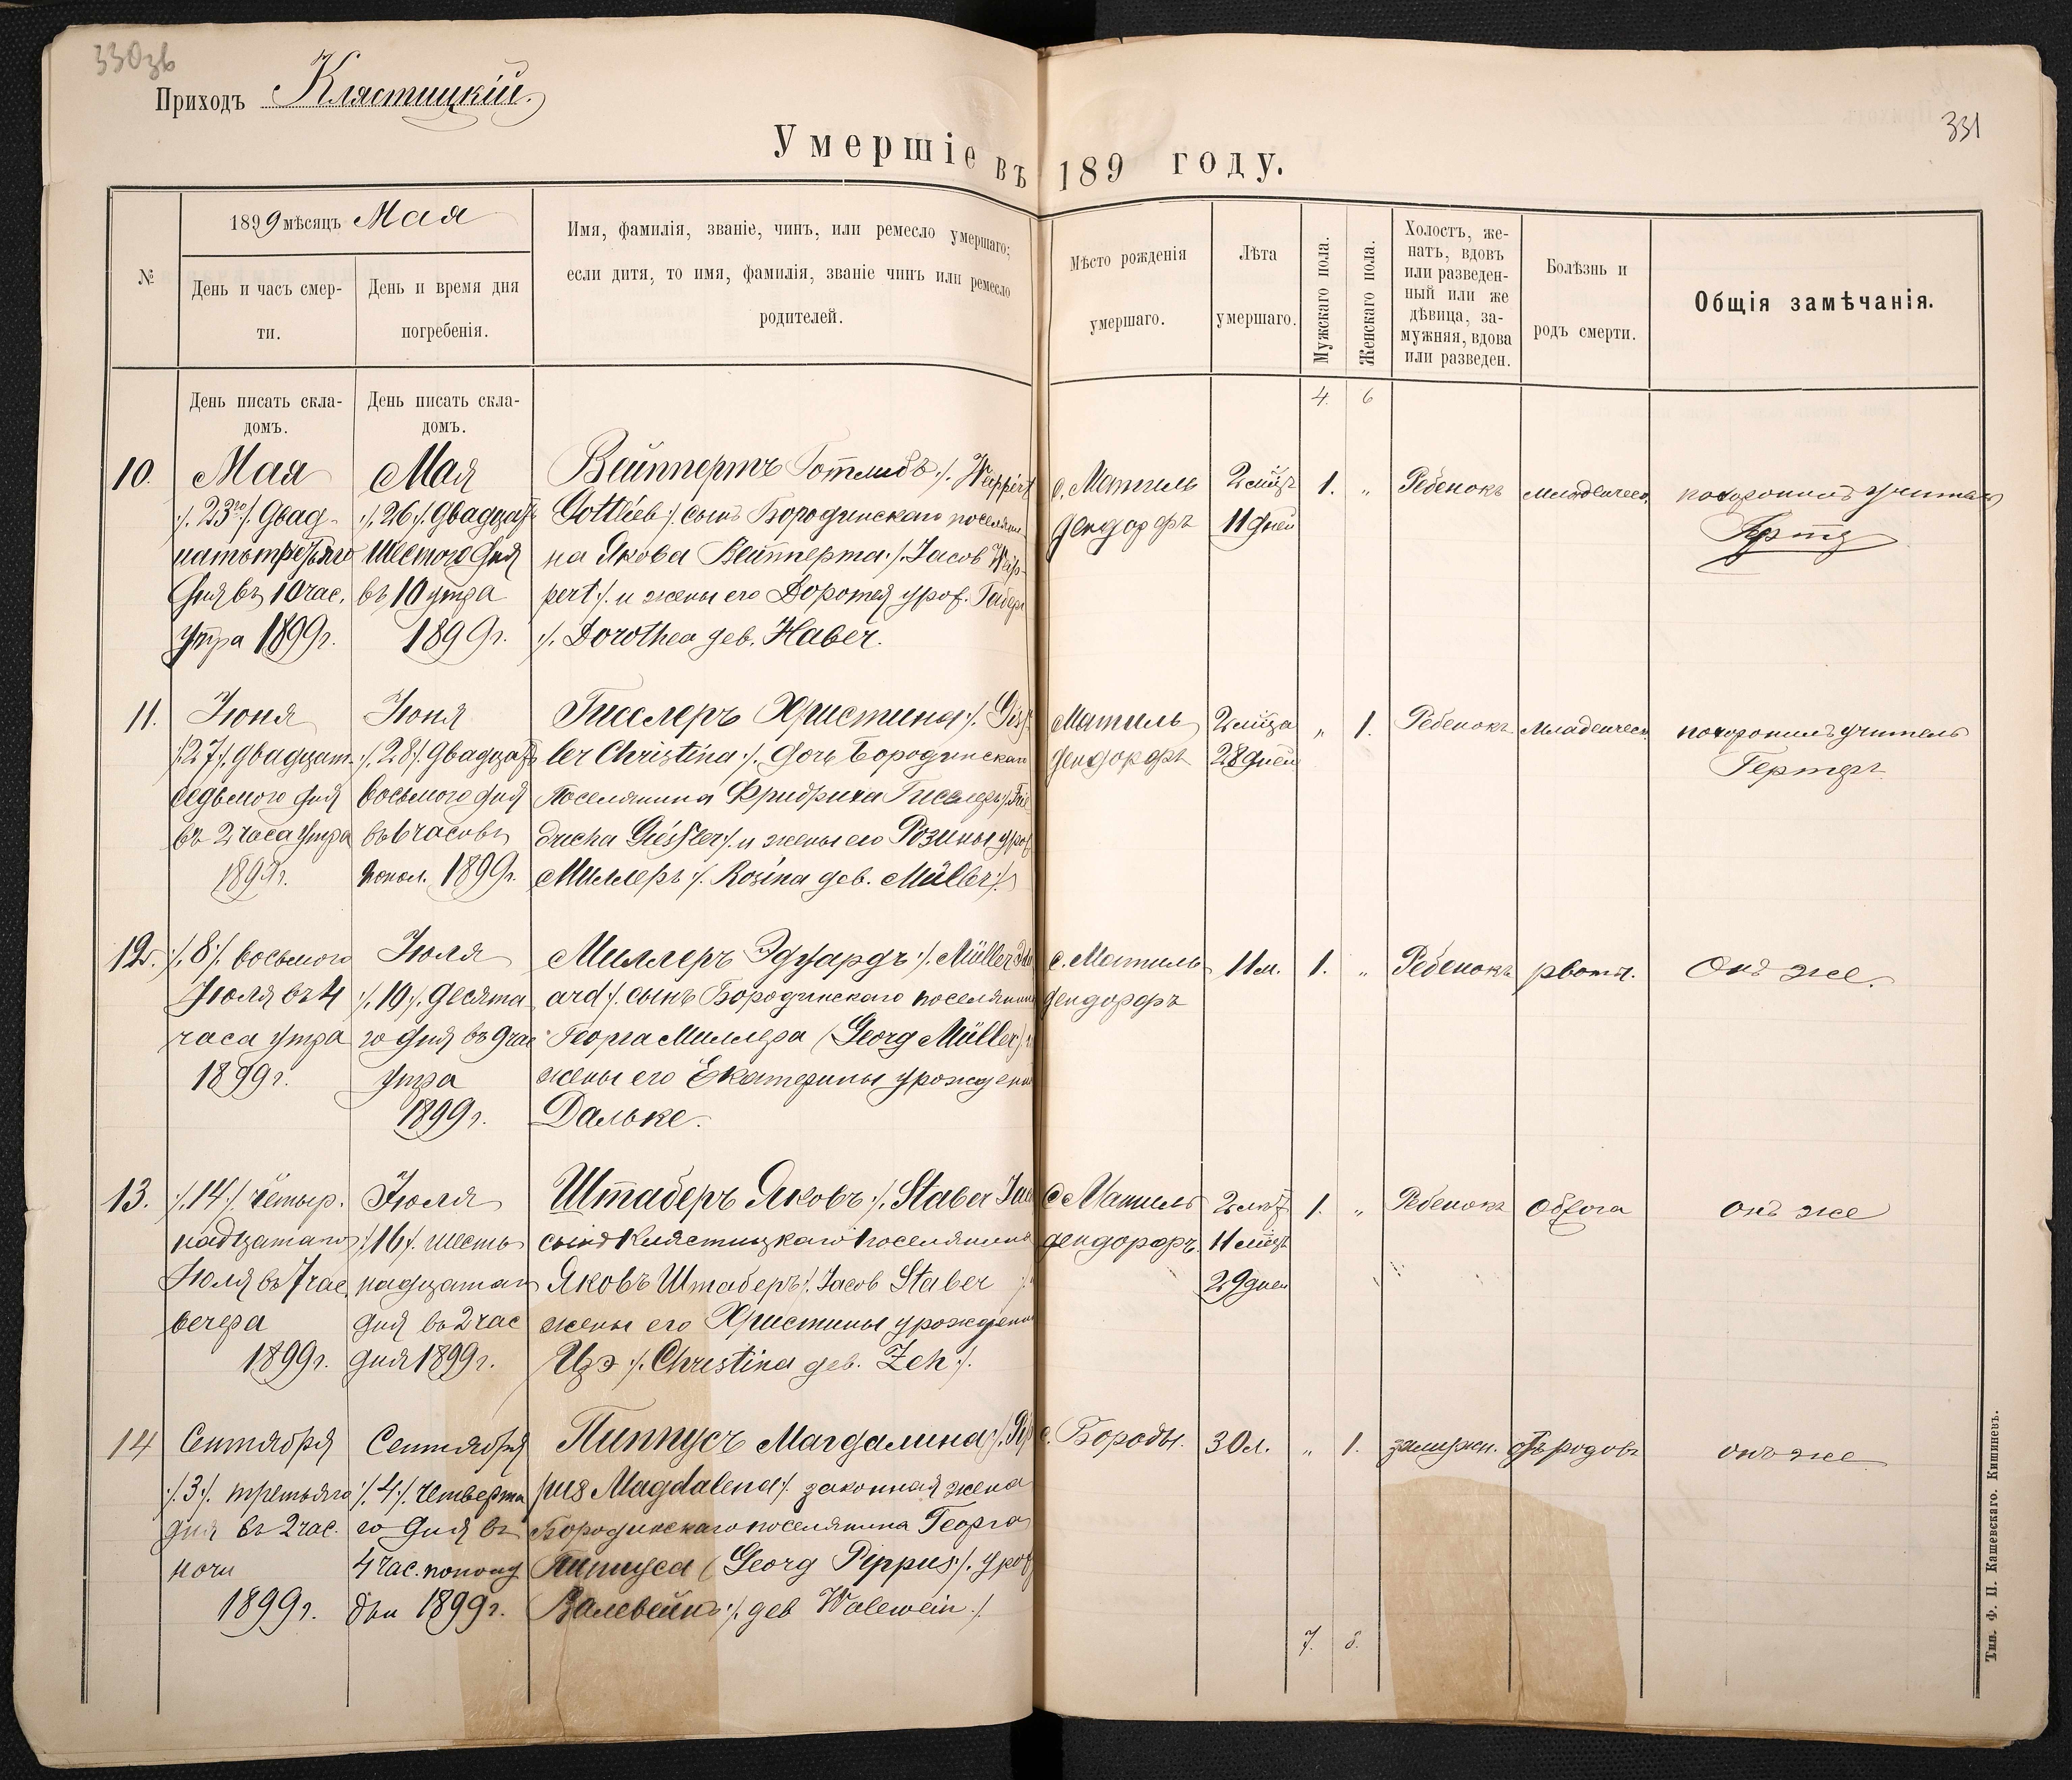 330зв
Приходъ Клястицкій.
331
Умершіе въ 189 году.
№
1899 мѣсяцъ Мая
День и часъ смер-
ти.
День и время дня
погребенія.
Имя, фамилія, званіе, чинъ, или ремесло умершаго;
если дитя, то имя, фамилія, званіе чинъ или ремесло
родителей.
Мѣсто рожденія
умершаго.
Лѣта
умершаго.
Мужскаго пола.
Женскаго пола.
Холостъ, же-
натъ, вдовъ
или разведен-
ный или же
дѣвица, за-
мужняя, вдова
или разведен.
Болѣзнь и
родъ смерти.
Общія замѣчанія.
День писать скла-
домъ.
День писать скла-
домъ.
4. 6
10.
Мая
./. 23го ./. двад-
цатьтретьяго
дня въ 10 час.
утра 1899г.
Мая
./. 26 ./. двадцать
шестого дня
въ 10 утра
1899г.
Вейппертъ Готлибъ ./. Weippert
Gottlieb ./. сынъ Бородинскаго поселяни
на Якова Вейпперта ./. Jacob Weip-
pert ./. и жены его Доротея урож.
./. Dorothea geb. Haber.
с. Матиль
дендорфъ
2 мѣц
11 дней
1. "
Ребенокъ
младенчес.
похоронилъ учитель
11.
Июня
./. 27 ./. двадцат.
седьмого дня
въ 2 часа утра
1899г.
Июня
./. 28 ./. двадцать
восьмого дня
въ 6 часовъ
попол. 1899г.
Гисслеръ Христина ./. Giess
ler Christina ./. дочь Бородинскаго
поселянина Фридриха Гисслеръ ./. Frie
dricha Giessler ./. и жены его Розины урож
Миллеръ ./. Rosina geb. Müller ./.
Матиль
дендорфъ
2 мѣца
28 дней
" 1.
Ребенокъ
Младенческ.
похоронилъ учитель
Гертеръ
12.
./. 8 ./. восьмого
Июля въ 4
часа утра
1899г.
Июля
./. 10 ./. десята
го дня въ 9 час
утра
1899г.
Миллеръ Эдуардъ ./. Müller Edu
ard ./. сынъ Бородинскаго поселянина
Георга Миллера (Georg Müller) и
жены его Екатерины урожденн
Дальке.
с. Матиль
дендорфъ
11 м.
1. "
Ребенокъ
рвота.
Онъ же.
13.
./. 14 ./. четыр.
надцатаго
Июля въ 7 час.
вечера
1899г.
Июля
./. 16 ./. шесть
надцатаго
дня въ 2 час
дня 1899г.
Штаберъ Яковъ ./. Staber Jac
сынъ Клястицкаго поселянина
Яковъ Штаберъ ./. Jacob Staber ./.
жены его Христины урожденн
Цэ ./. Christina geb. Zeh ./.
с Матиль
дендорфъ
2 лѣт
11 мѣц
29 дней
1. "
Ребенокъ
онъ же
14
Сентября
./. 3 ./. третьяго
дня въ 2 час.
ночи
1899г.
Сентября
./. 4 ./. четверта
го дня въ
4 час. пополу
дни 1899г.
Пиппусъ Магдалина ./. Pip
pus Magdalena ./. законная жена
Бородинскаго поселянина Георга
Пиппуса (Georg Pippus ./. урож
Валевейнъ ./. geb Walewein ./.
с. Бороды.
30 л.
" 1.
замужн.
отъ родовъ
онъ же
7. 8.
Тип. Ф. П. Кашевскаго. Кишиневъ.